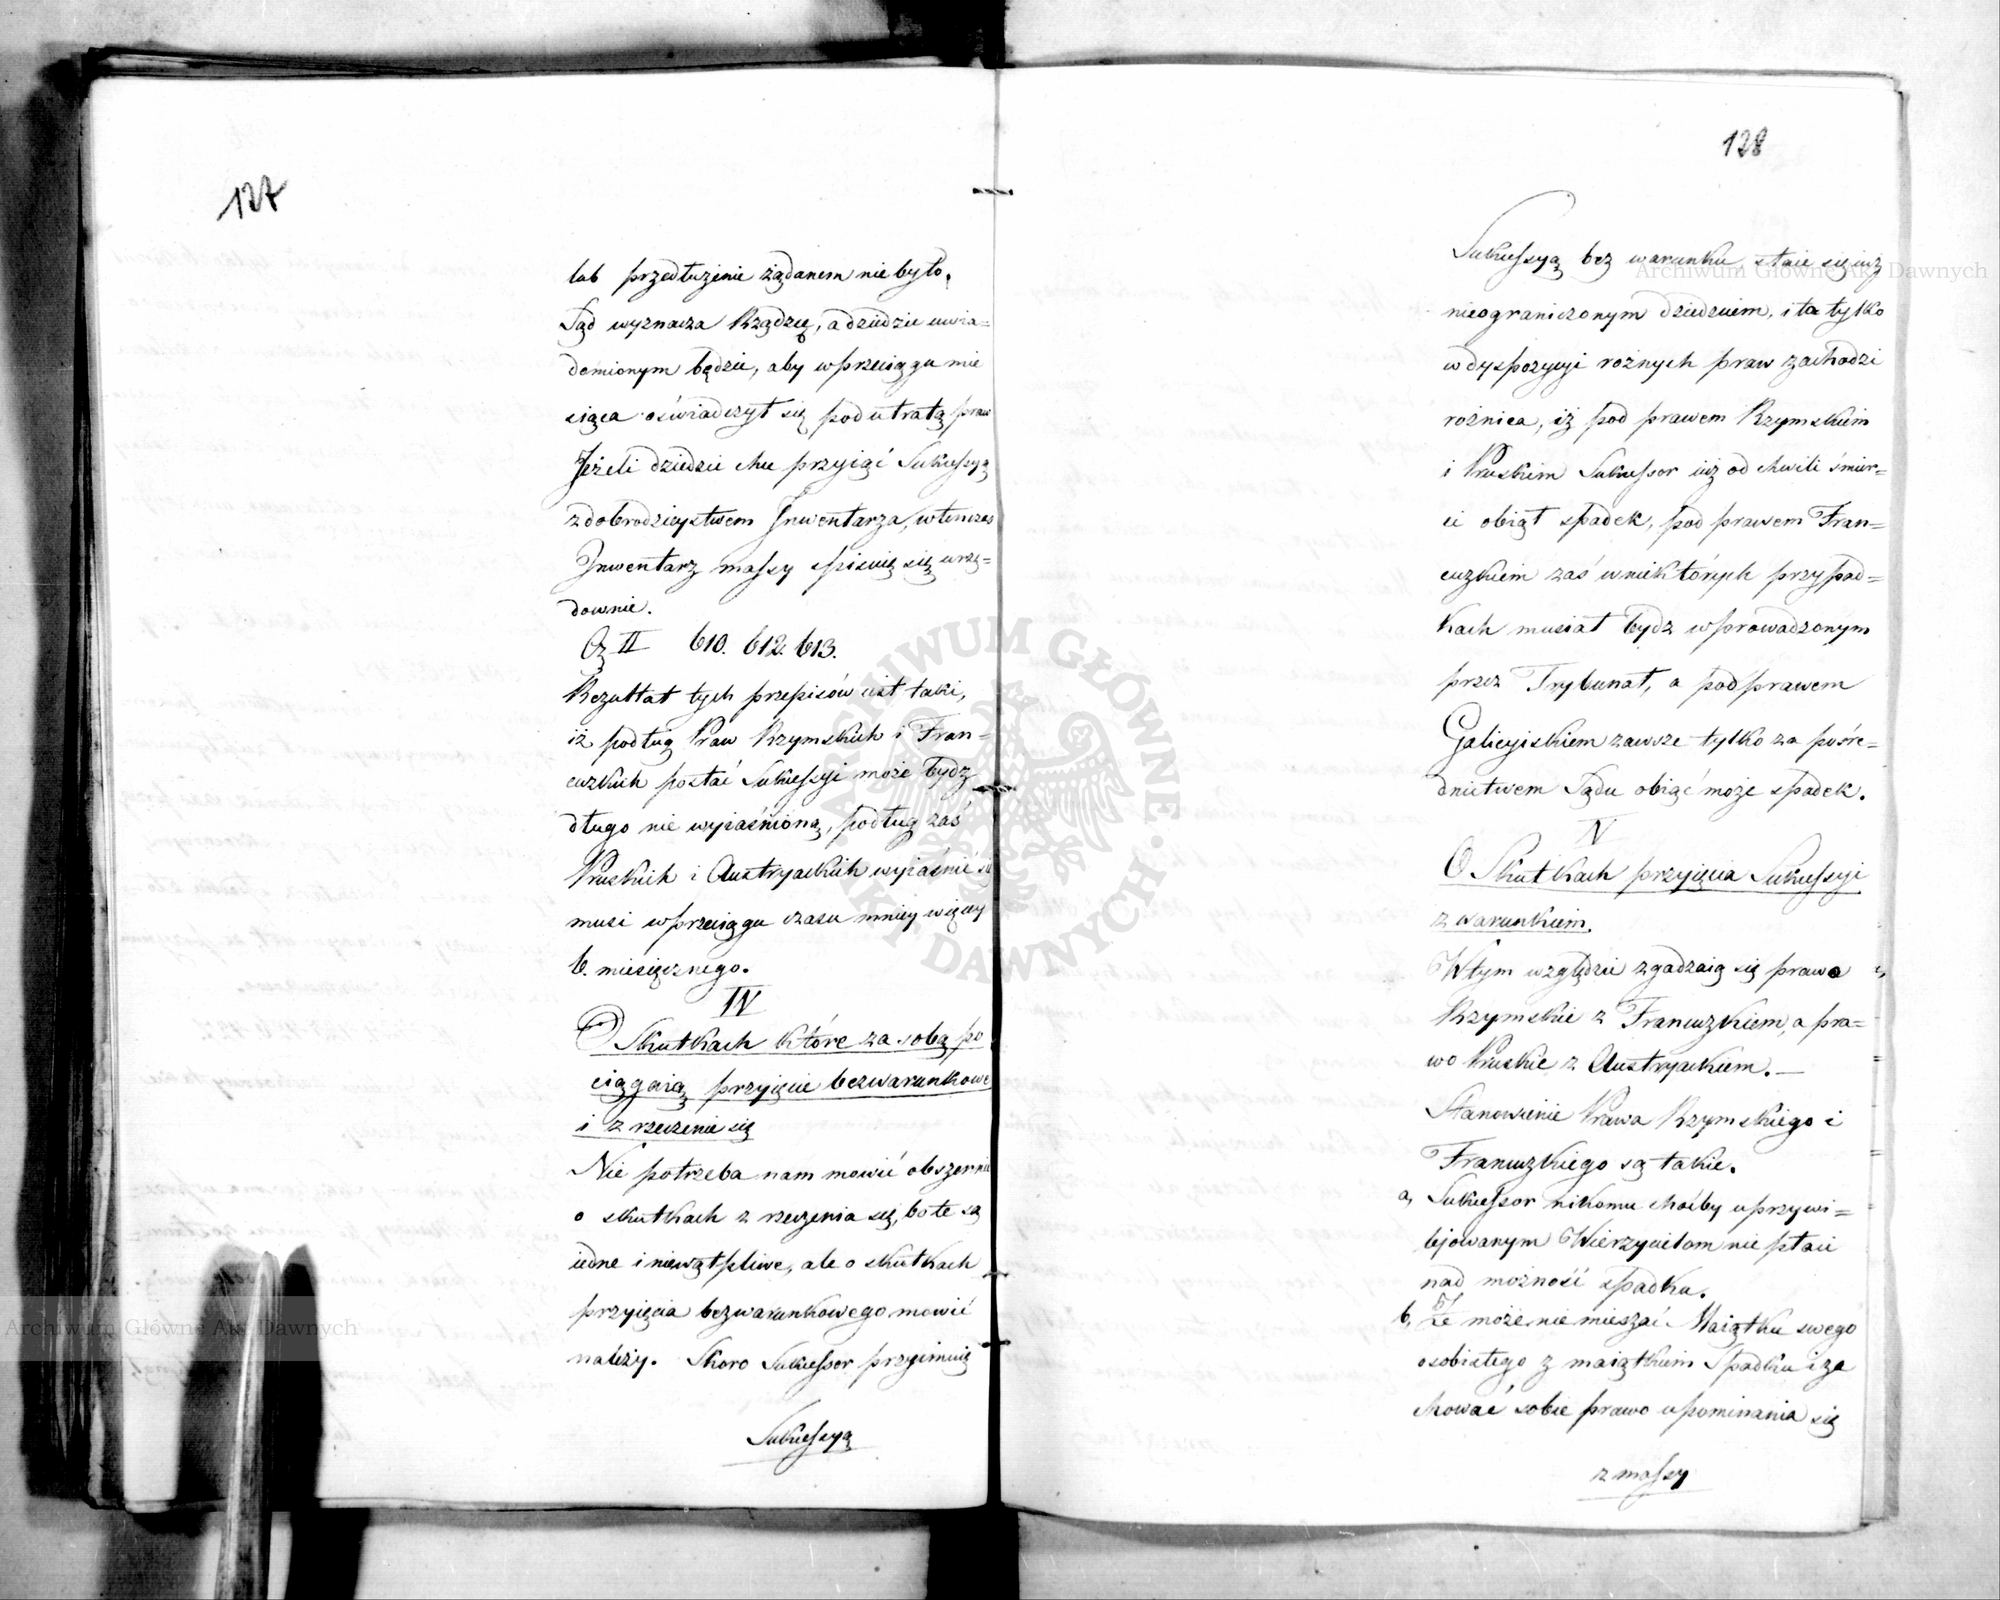 127
lub przedłużenie żądanem nie było.
Sąd wyznacza Rządzcę, a dziedzic uwia=
domionym będzie, aby w przeciągu mie
siąca oświadczył się pod utratą praw
Jeżeli dziedzic chce przyiąć Sukcessyą
z dobrodzieystwem Inwentarza, wtenczas
Inwentarz massy spisuię się urzę=
downie.
Cz II 610. 612. 613.
Rezultat tych przepisów iest taki,
iż podług Praw Rzymskich i Fran=
cuzkich postać Sukcessyi może bydź
długo nie wyiaśnioną, podług zaś
Pruskich i Austryackich wyiaśnić się
musi w przeciągu czasu mniey więcey
6. miesięcznego.
IV
O Skutkach które za sobą po
ciągaią przyięcie bezwarunkowe
i zrzeczenie się
Nie potrzeba nam mowić obszernie
o skutkach zrzeczenia się, bo te są
iedne i niewątpliwe, ale o skutkach
przyięcia bezwarunkowego mowić
należy. Skoro Sukcessor przyimuię
Sukcessyą
128
Sukcessyą bez warunku, staie się iuż
nieograniczonym dziedzicem, i ta tylko
w dyspozycyi rożnych praw zachodzi
rożnica, iż pod prawem Rzymskim
i Pruskim Sukcessor iuż od chwili śmier=
ci obiął spadek, pod prawem Fran=
cuzkiem zaś w niektórych przypad=
kach musiał bydź wprowadzonym
przez Trybunał, a pod prawem
Galicyiskiem zawsze tylko za pośre=
dnictwem Sądu obiąć może spadek.
V
O Skutkach przyięcia Sukcessyi
z warunkiem.
W tym względzie zgadzaią się prawa
Rzymskie z Francuzkiem, a pra=
wo Pruskie z Austryackiem. —
Stanowienie Prawa Rzymskiego i
Francuzkiego są takie.
a, Sukcessor nikomu choćby uprzywi=
lejowanym Wierzycielom nie płaci
nad możność spadku.
b, Że może nie mieszać Maiątku swego
osobistego z maiątkiem Spadku i za
chować sobie prawo upominania się
z massy
Archiwum Główne Akt Dawnych
Archiwum Główne Akt Dawnych
ARCHIWUM GŁÓWNE AKT DAWNYCH